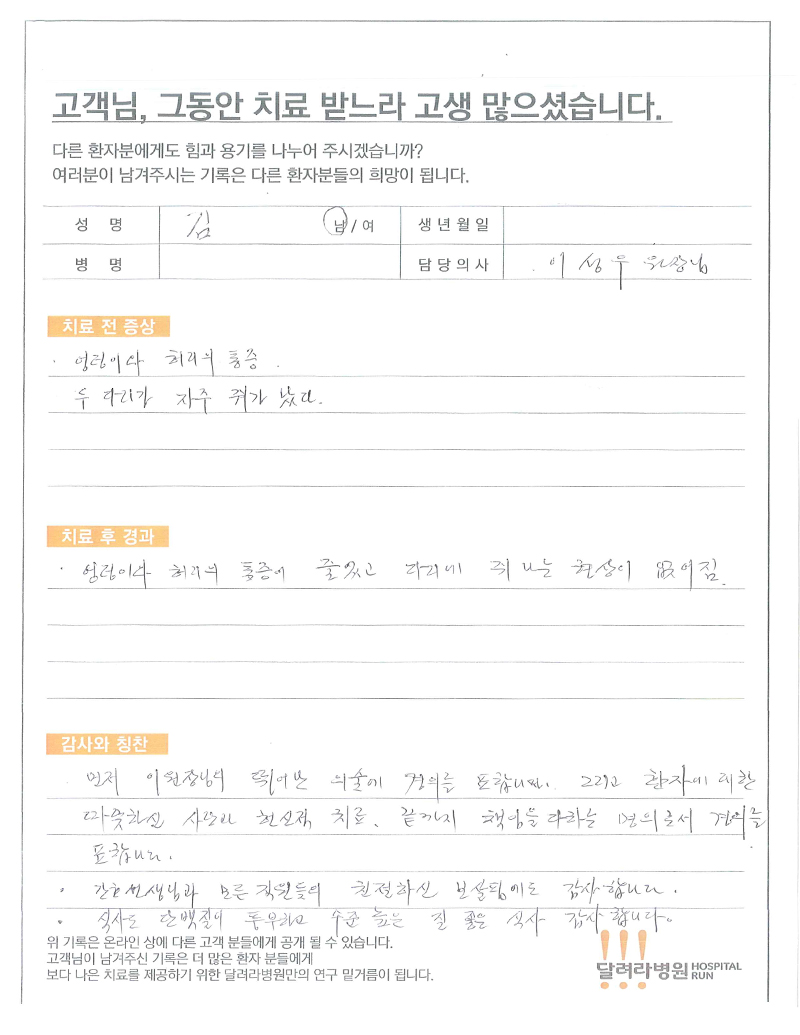 고객님, 그동안 치료 받느라 고생 많으셨습니다.
다른 환자분에게도 힘과 용기를 나누어 주시겠습니까?
여러분이 남겨주시는 기록은 다른 환자분들의 희망이 됩니다.
성 명 김 남/여 생년월일
병 명 담당의사 이성우 원장님
치료 전 증상
· 엉덩이와 허리의 통증.
두 다리가 자주 쥐가 났다.
치료 후 경과
· 엉덩이와 허리의 통증이 줄었고 다리에 쥐 나는 현상이 없어짐.
감사와 칭찬
먼저 이원장님의 뛰어난 의술에 경의를 표합니다. 그리고 환자에 대한
따뜻하신 사랑과 헌신적 치료, 끝까지 책임을 다하는 명의로서 경의를
표합니다.
· 간호선생님과 모든 직원들의 친절하신 보살핌에도 감사합니다.
· 식사도 단백질이 풍부하고 수준 높은 질 좋은 식사 감사합니다.
위 기록은 온라인 상에 다른 고객 분들에게 공개 될 수 있습니다.
고객님이 남겨주신 기록은 더 많은 환자 분들에게
보다 나은 치료를 제공하기 위한 달려라병원만의 연구 밑거름이 됩니다.
달려라병원 HOSPITAL RUN